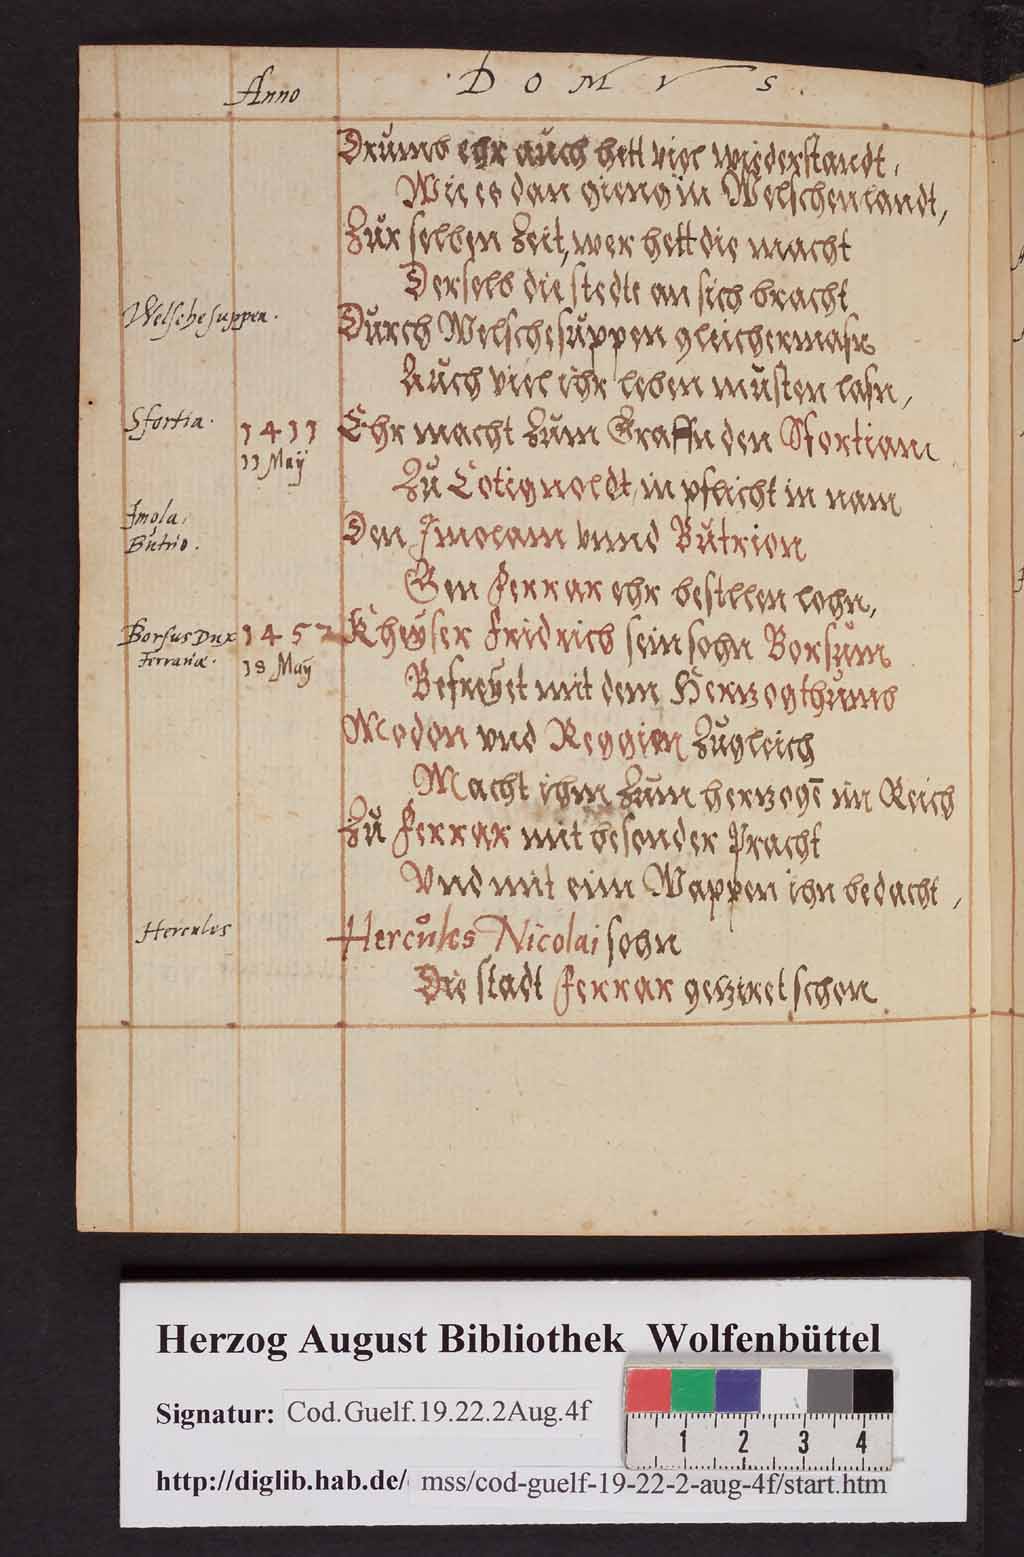 Anno
DOMVS.
Drumb ehr auch hett viel wiederstandt,
Wie es dan gieng in Welschenlandt,
Zur selben Zeit, wer hett die macht
Derselb die stedte an sich bracht
Welsche suppen.
Durch Welsche suppen gleichermasn
Auch viel ihr leben musten lasn,
Sfortia.
1411
Ehr macht Zum Graffn den Sfortiam
11 Maÿ
Zu Cotignoldt, in pflicht in nam
Imola.
Den Imolam vnnd Butrion
Butrio.
Gen Ferrar ehr bestllen lohn,
Borsus Dux
1452
Kheÿser Fridrich sein sohn Borsum
Ferrariæ.
18 Maÿ
Befreÿet mit dem Hertzogthumb
Modon vnd Reggion Zugleich
Macht ihm Zum hertzogē im Reich
Zu Ferrar mit besonder Pracht
Vnd mit eim Wappen ihn bedacht,
Hercules
Hercules Nicolai sohn
Die stadt Ferrar getziret schon
Herzog August Bibliothek Wolfenbüttel
Signatur: Cod.Guelf.19.22.2Aug.4f
1 2 3 4
http://diglib.hab.de/ mss/cod-guelf-19-22-2-aug-4f/start.htm